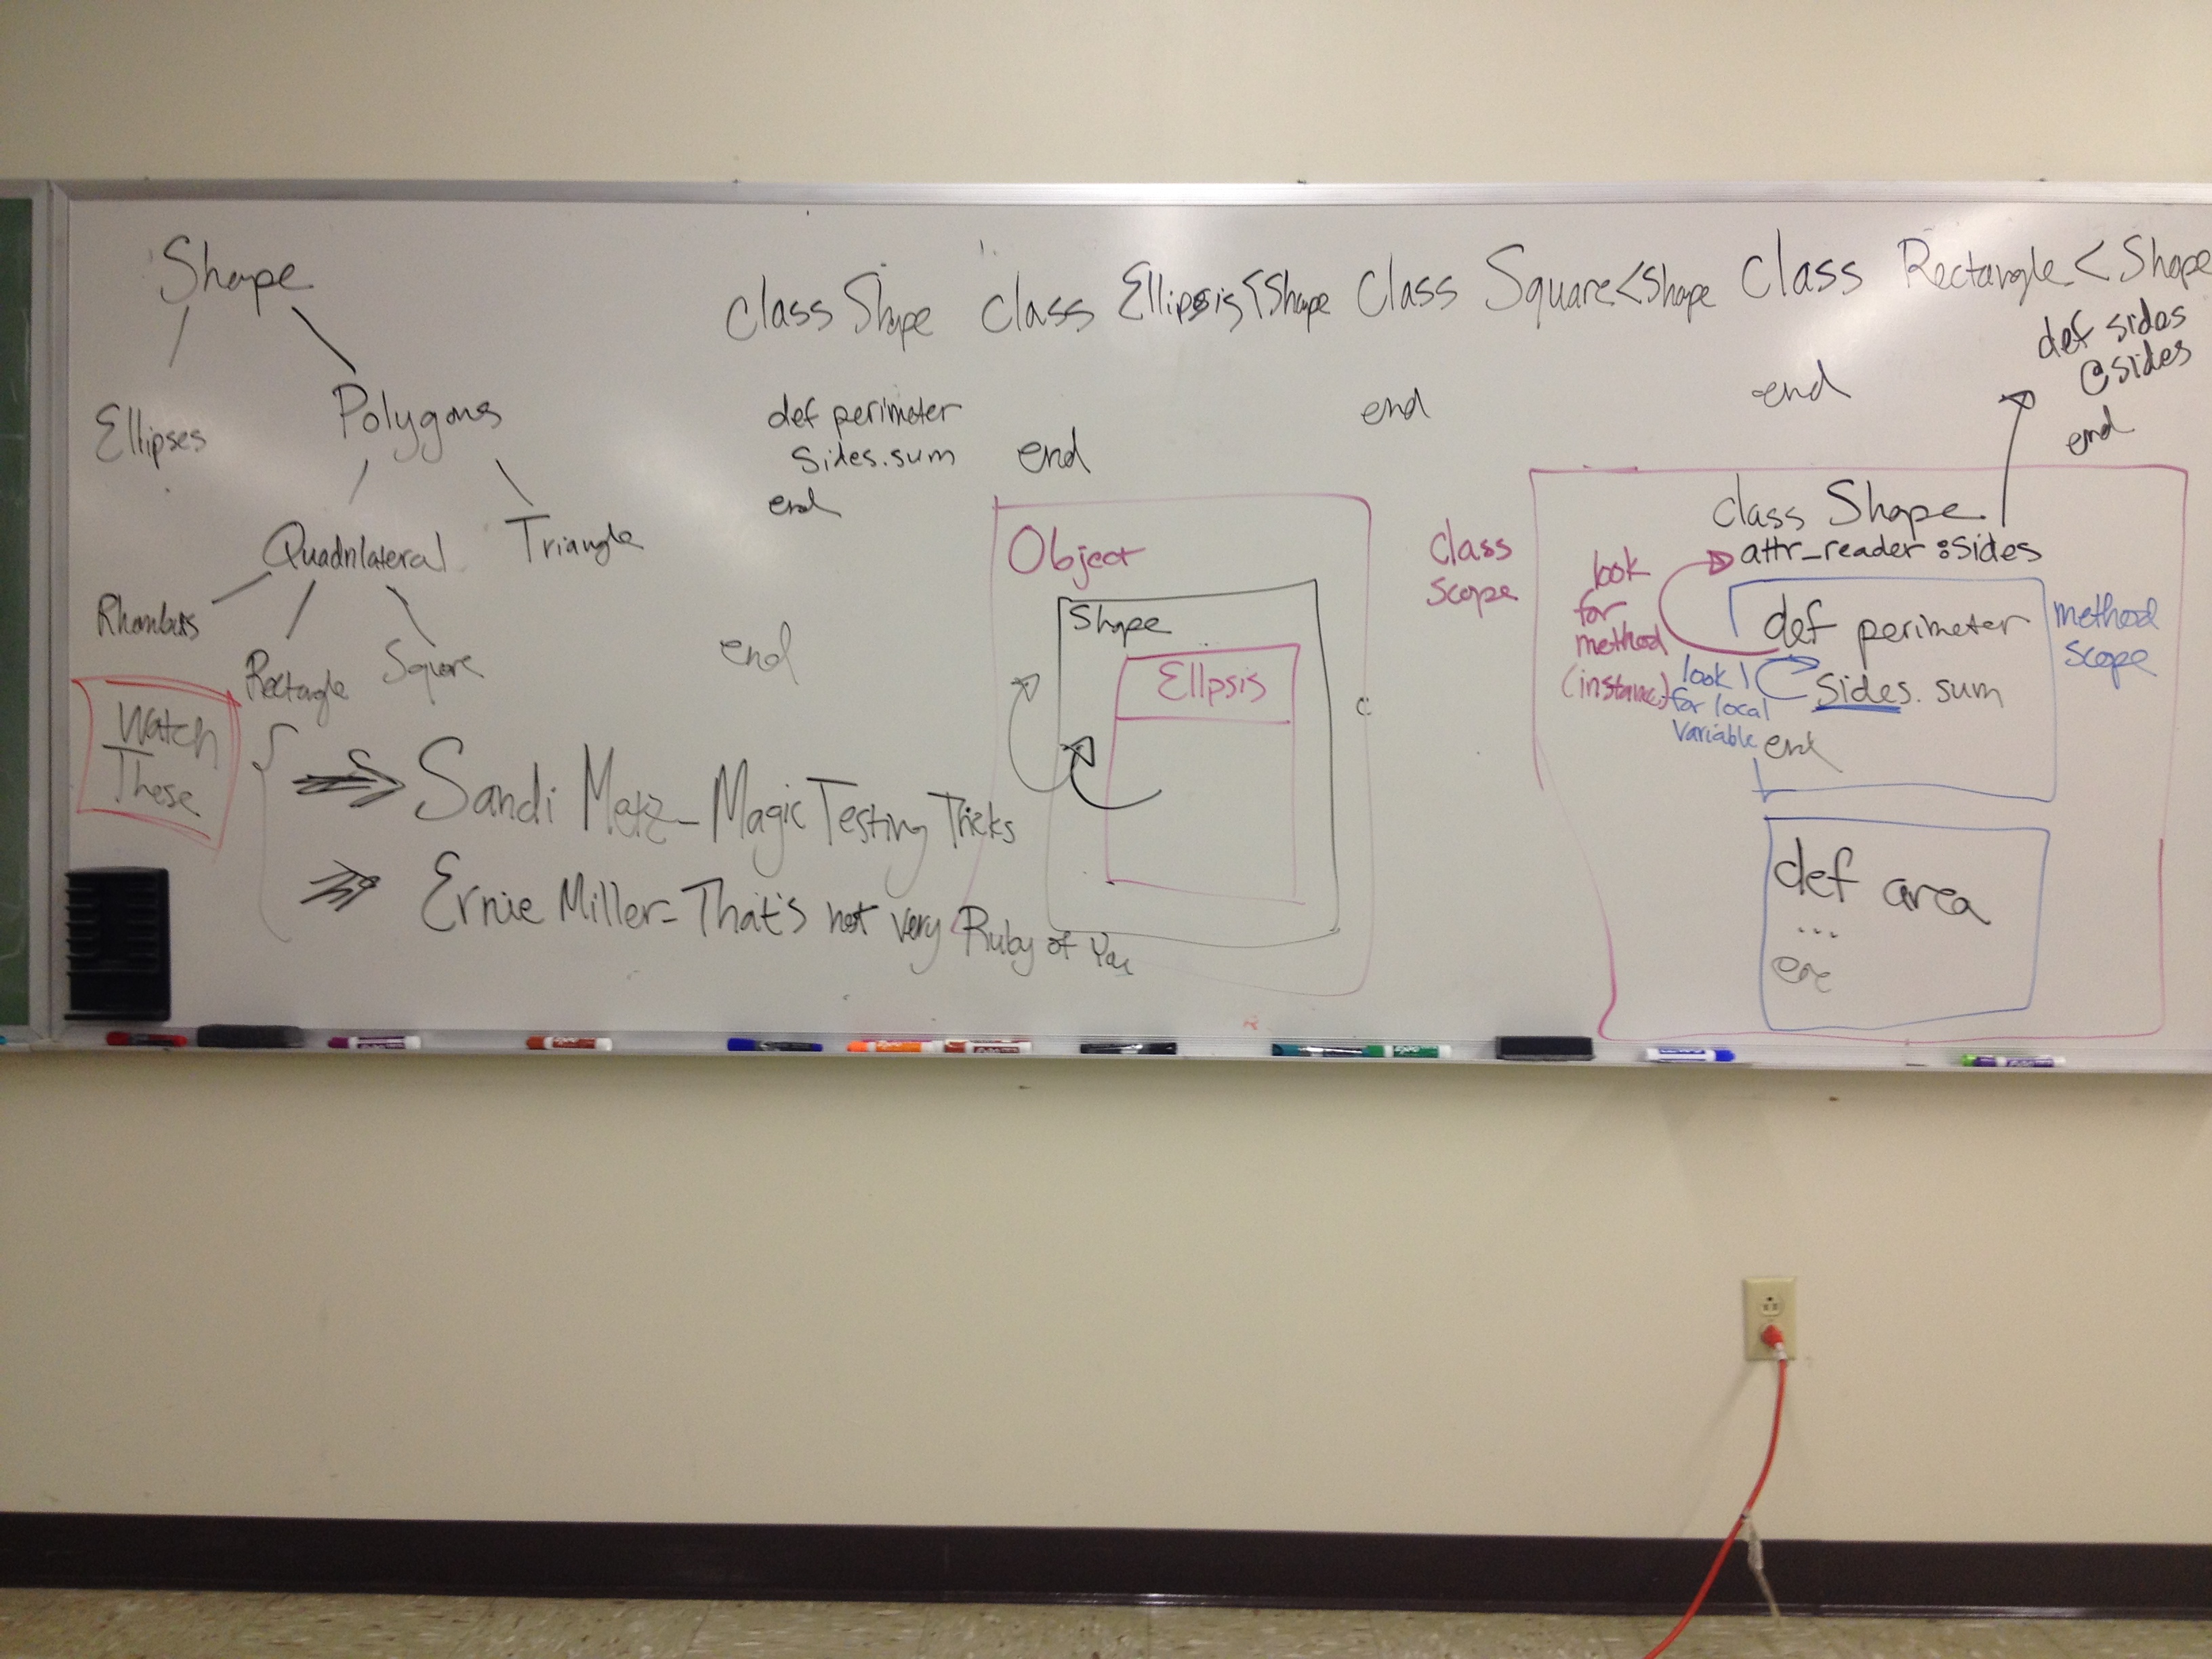 Shape
Ellipses
Polygons
Quadrilateral
Triangle
Rhombus
Rectangle
Square
Watch
These
Sandi Metz - Magic Testing Tricks
Ernie Miller - That's not very Ruby of You
class Shape
def perimeter
sides.sum
end
end
class Ellipsis < Shape
end
Class Square < Shape
end
Class Rectangle < Shape
end
def sides
@sides
end
Object
Shape
Ellpsis
class
scope
class Shape
attr_reader :sides
look
for
method
(instance)
def perimeter
sides.sum
end
look
for local
variable
method
scope
def area
...
end